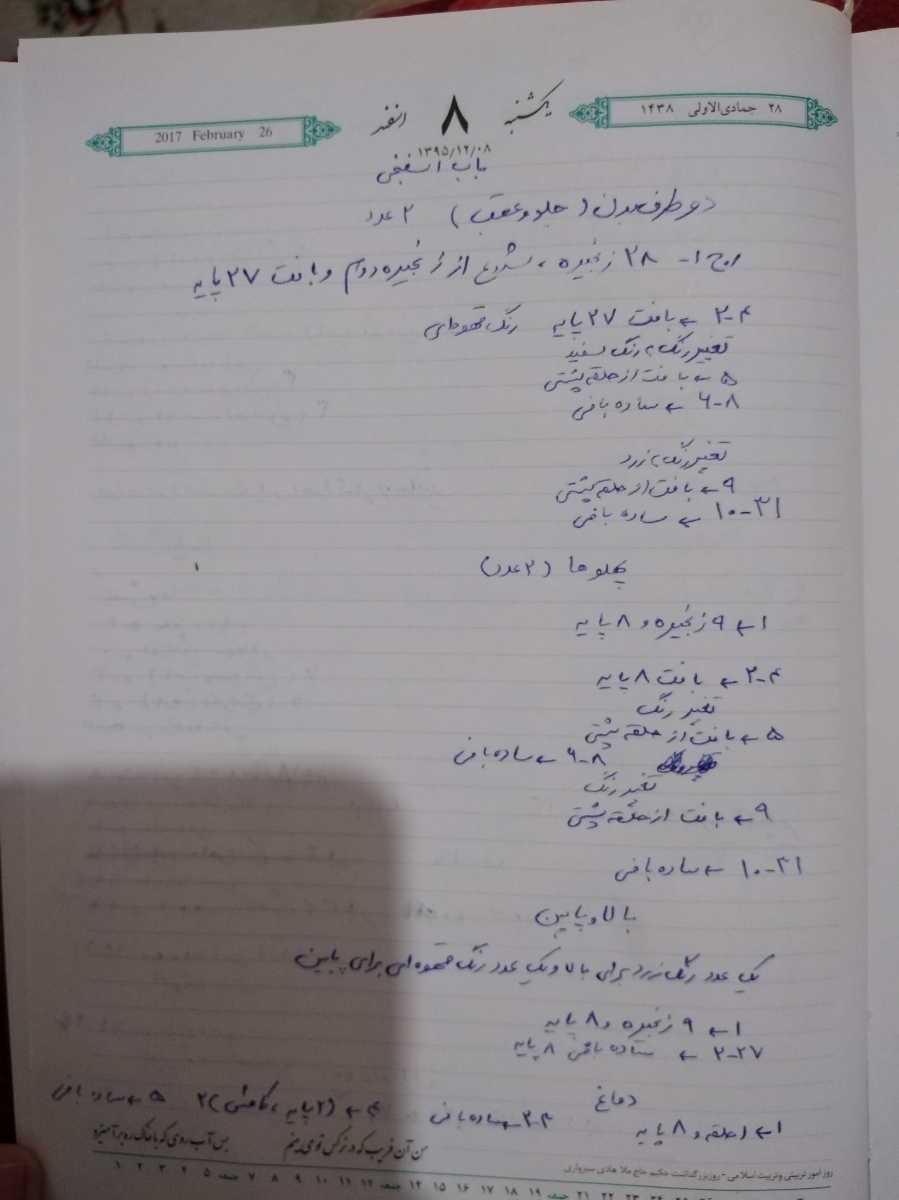 ۲۸ جمادی‌الاولی ۱۴۳۸
یکشنبه ۸ اسفند
2017 February 26
۱۳۹۵/۱۲/۰۸
باب اسفنجی
دو طرف بدن (جلو و عقب) ۲ عدد
رج ۱- ۲۸ زنجیره، شروع از زنجیره دوم و بافت ۲۷ پایه
۲-۴ ← بافت ۲۷ پایه رنگ قهوه‌ای
تغییر رنگ، رنگ سفید
۵ ← بافت از حلقه پشتی
۶-۸ ← ساده بافی
تغییر رنگ، زرد
۹ ← بافت از حلقه پشتی
۱۰-۳۱ ← ساده بافی
پهلو ها (۲ عدد)
۱ ← ۹ زنجیره و ۸ پایه
۲-۴ ← بافت ۸ پایه
تغییر رنگ
۵ ← بافت از حلقه پشتی
۶-۸ ← ساده بافی
تغییر رنگ
۹ ← بافت از حلقه پشتی
۱۰-۳۱ ← ساده بافی
بالا و پایین
یک عدد رنگ زرد برای بالا و یک عدد رنگ قهوه ای برای پایین
۱ ← ۹ زنجیره و ۸ پایه
۲-۲۷ ← ساده بافی ۸ پایه
دماغ
۱ ← حلقه و ۸ پایه ۲-۳ ← ساده بافی ۴ ← (۲ پایه، کاهش) ۲ ۵ ← ساده بافی
من آن فریب که در نرگس تو می‌بینم بس آب روی که با خاک ره برآمیزد
روز امور تربیتی و تربیت اسلامی - روز بزرگداشت حکیم حاج ملا هادی سبزواری
۱ ۲ ۳ ۴ ۵ جمعه ۷ ۸ ۹ ۱۰ ۱۱ ۱۲ جمعه ۱۴ ۱۵ ۱۶ ۱۷ ۱۸ ۱۹ جمعه ۲۱ ۲۲ ۲۳ ۲۴